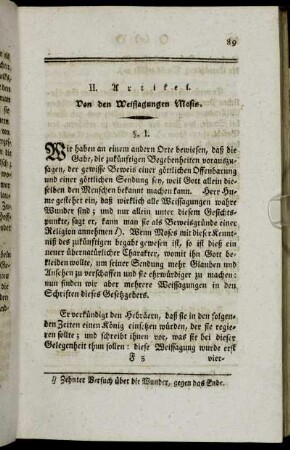 89
II. Artikel.
Von den Weissagungen Mosis.
§. 1.
Wir haben an einem andern Orte bewiesen, daß die
Gabe, die zukünftigen Begebenheiten vorauszusa-
gen, der gewisse Beweis einer göttlichen Offenbarung
und einer göttlichen Sendung sey, weil Gott allein die-
selben den Menschen bekannt machen kann. Herr Hu-
me gestehet ein, daß wirklich alle Weissagungen wahre
Wunder sind; und nur allein unter diesem Gesichts-
punkte, sagt er, kann man sie als Beweisgründe einer
Religion annehmen f). Wenn Moses mit dieser Kennt-
niß des zukünftigen begabt gewesen ist, so ist dieß ein
neuer übernatürlicher Charakter, womit ihn Gott be-
kleiden wollte, um seiner Sendung mehr Glauben und
Ansehen zu verschaffen und sie ehrwürdiger zu machen:
nun finden wir aber mehrere Weissagungen in den
Schriften dieses Gesetzgebers.
Er verkündigt den Hebräern, daß sie in den folgen-
den Zeiten einen König einsetzen würden, der sie regie-
ren sollte; und schreibt ihnen vor, was sie bei dieser
Gelegenheit thun sollen: diese Weissagung wurde erst
F 5 vier-
f) Zehnter Versuch über die Wunder, gegen das Ende.